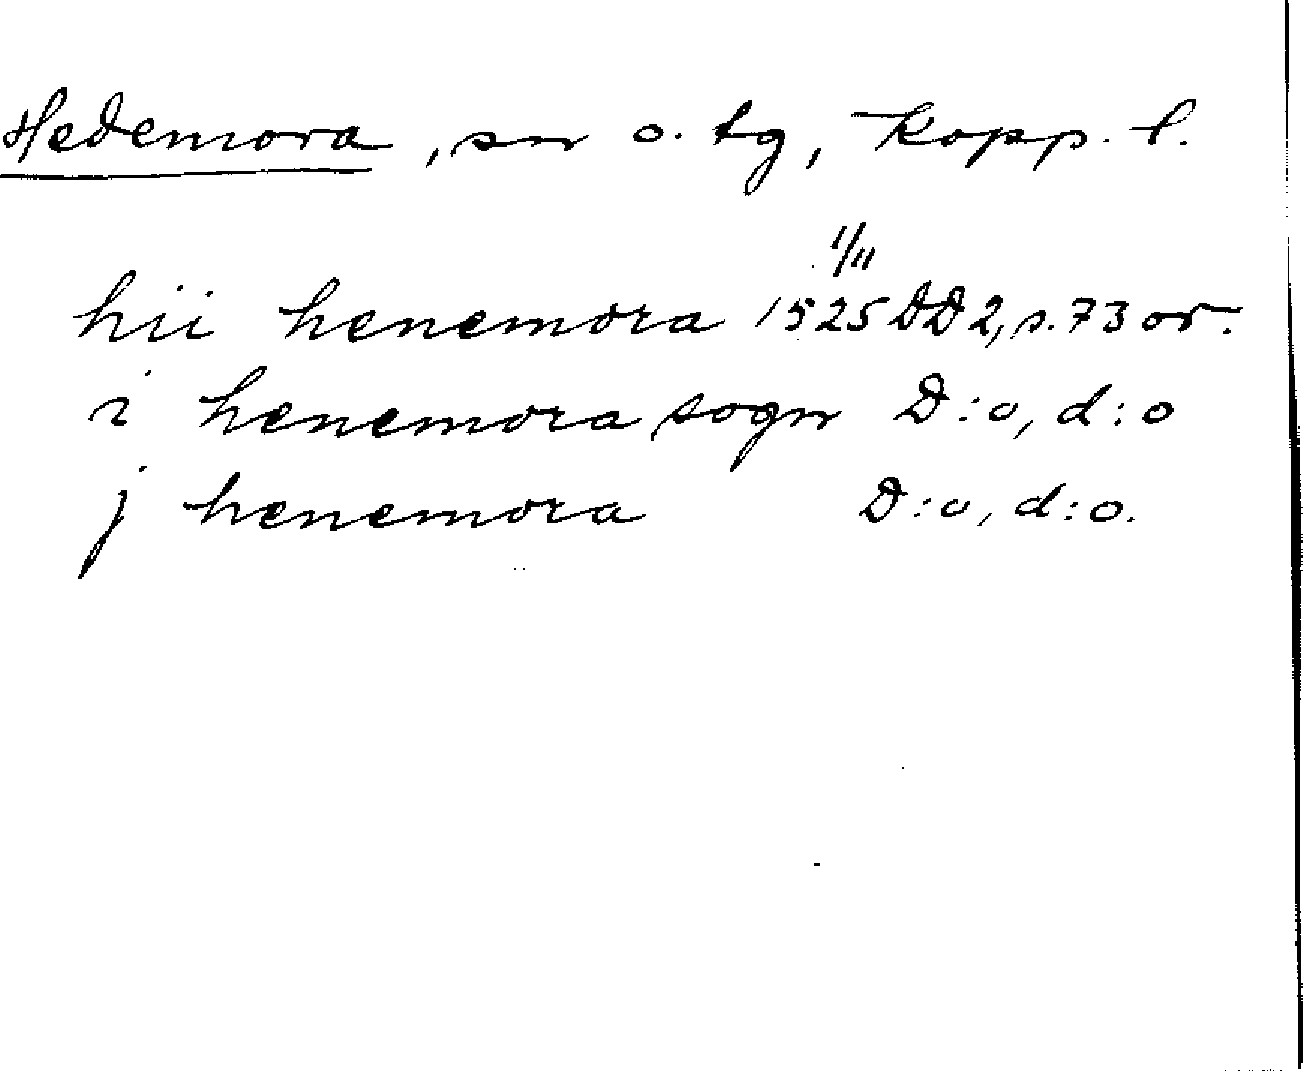 Hedemora, sn o. tg, Kopp. l.
1/11
hii henemora 1525 DD2, s. 73 or.
i henemora sogn D:o, d:o
j henemora D:o, d:o.